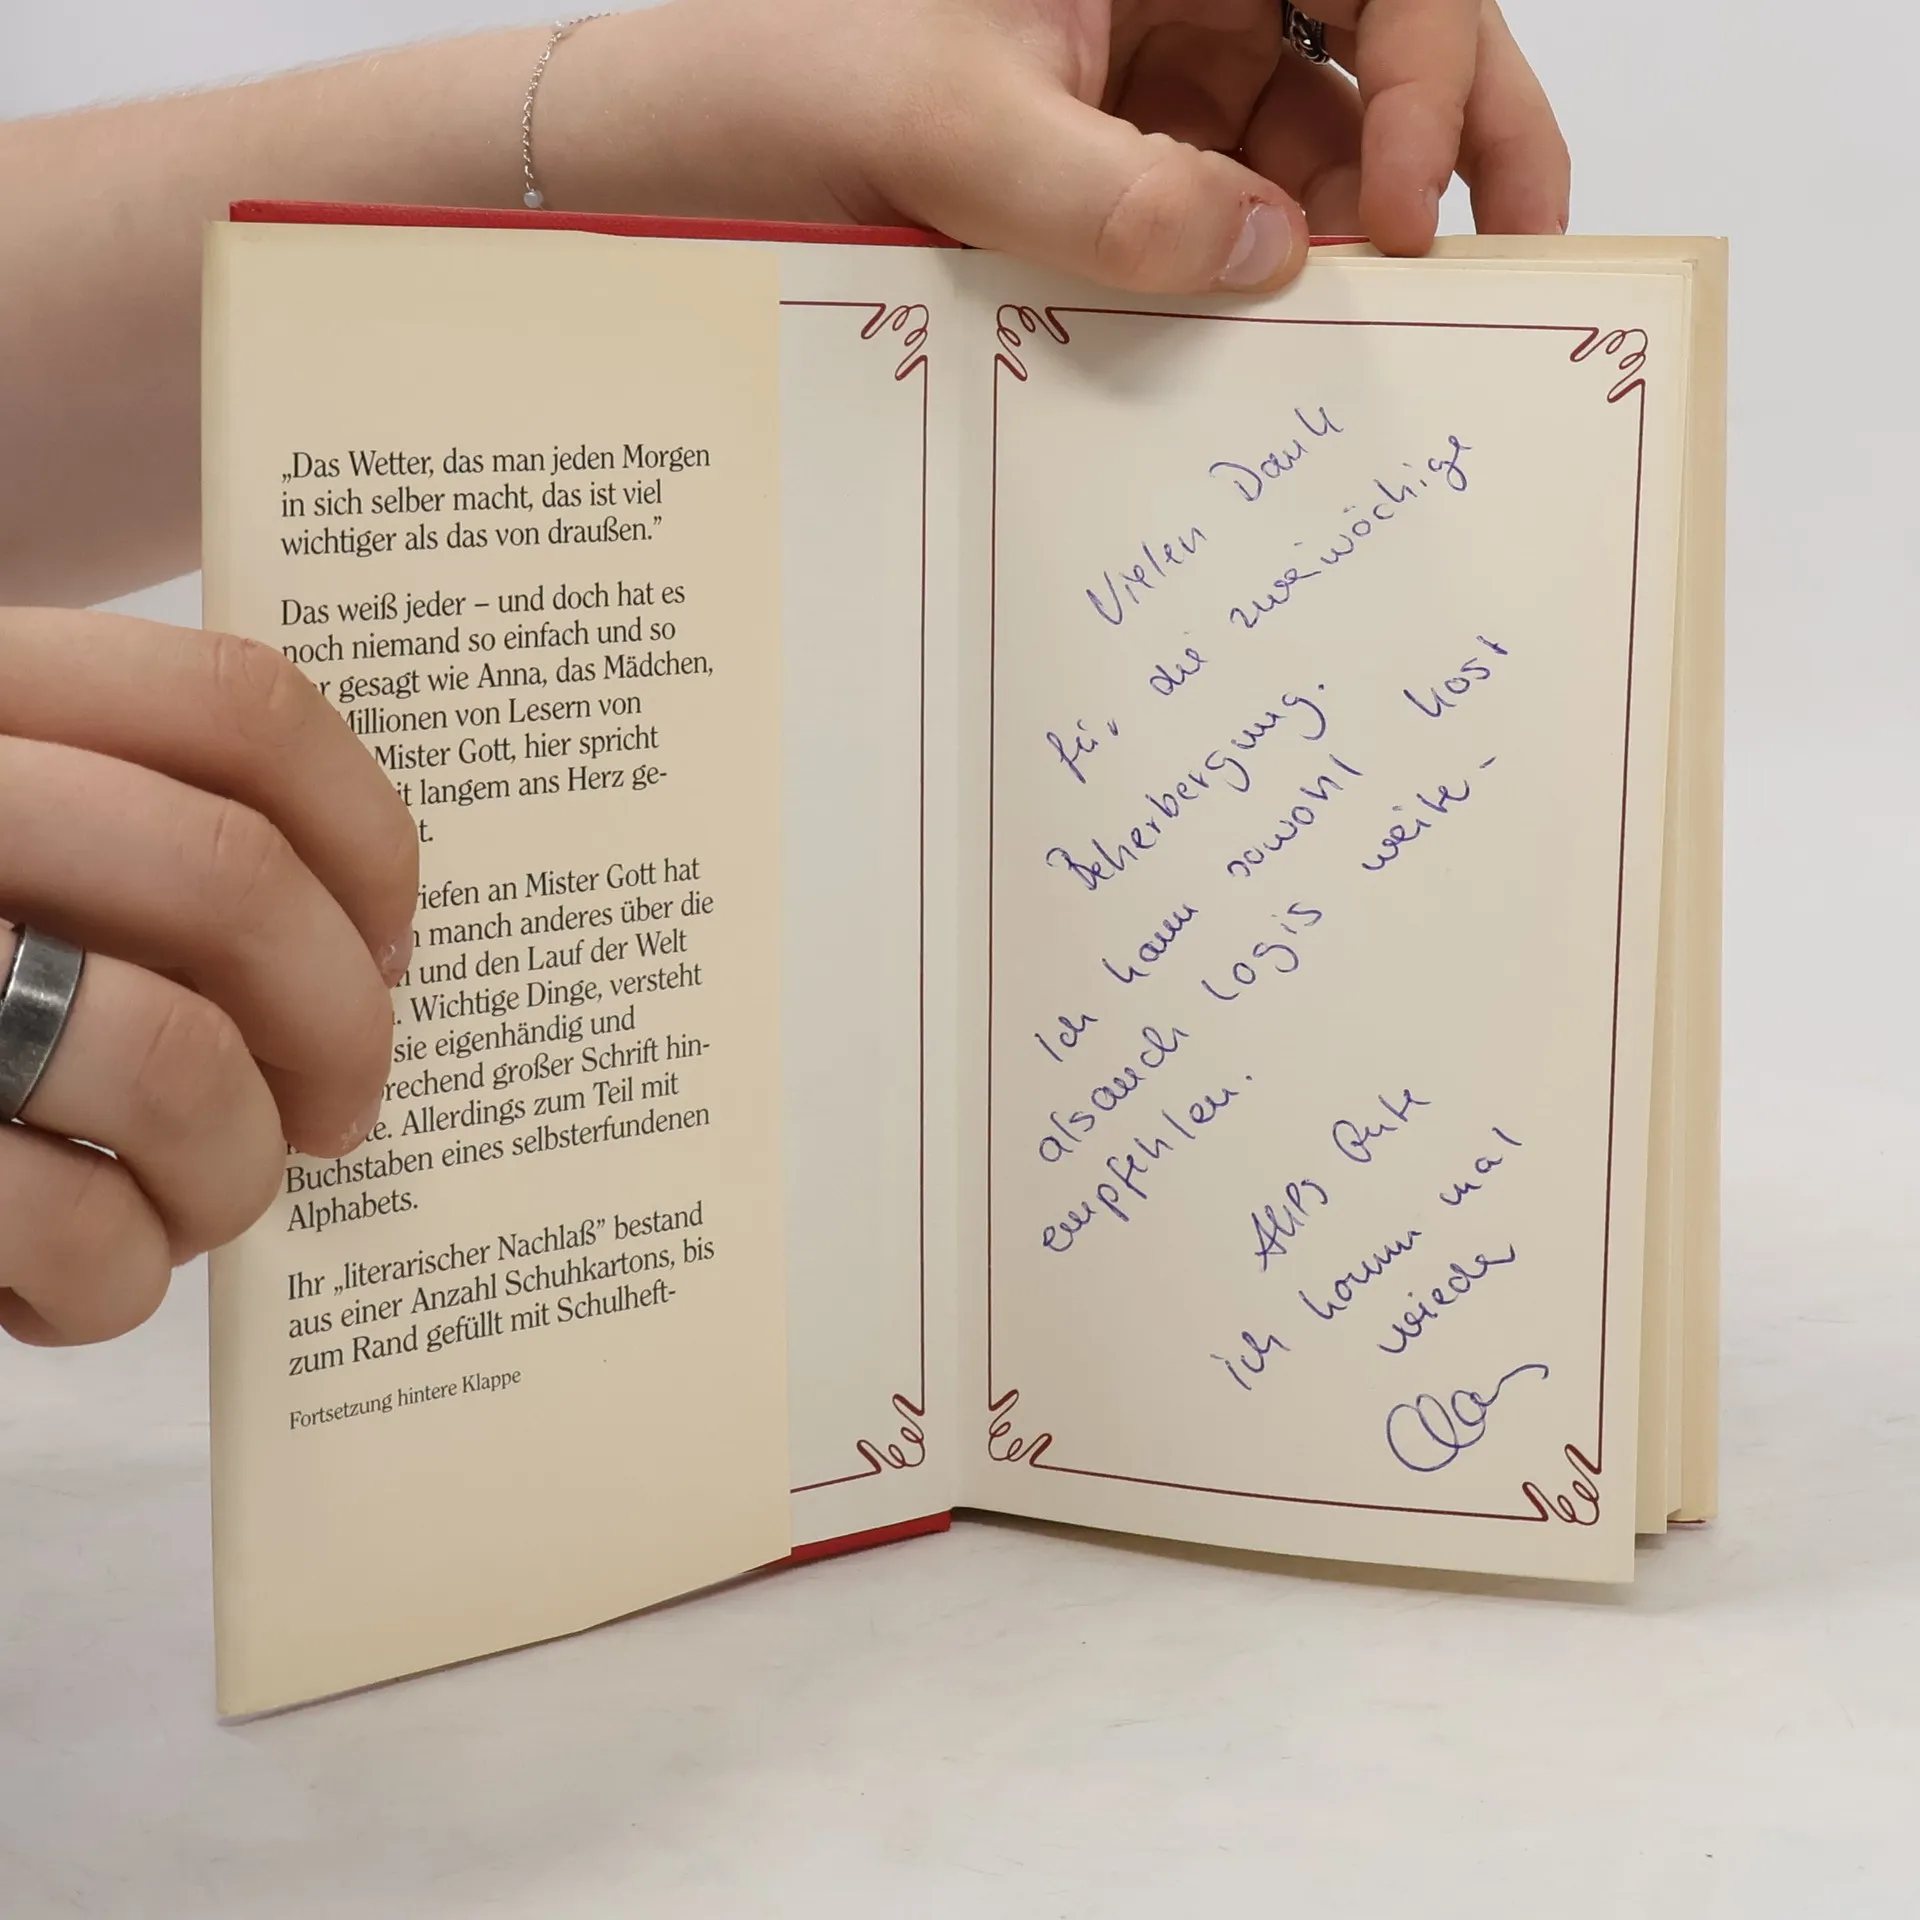 „Das Wetter, das man jeden Morgen
in sich selber macht, das ist viel
wichtiger als das von draußen.”
Das weiß jeder – und doch hat es
noch niemand so einfach und so
r gesagt wie Anna, das Mädchen,
Millionen von Lesern von
Mister Gott, hier spricht
it langem ans Herz ge-
t.
riefen an Mister Gott hat
manch anderes über die
und den Lauf der Welt
. Wichtige Dinge, versteht
sie eigenhändig und
rechend großer Schrift hin-
te. Allerdings zum Teil mit
Buchstaben eines selbsterfundenen
Alphabets.
Ihr „literarischer Nachlaß” bestand
aus einer Anzahl Schuhkartons, bis
zum Rand gefüllt mit Schulheft-
Fortsetzung hintere Klappe
Vielen Dank
für die zweiwöchige
Beherbergung.
Ich kann sowohl Kost
alsauch Logis weiter-
empfehlen.
Alles Gute
ich komm mal
wieder